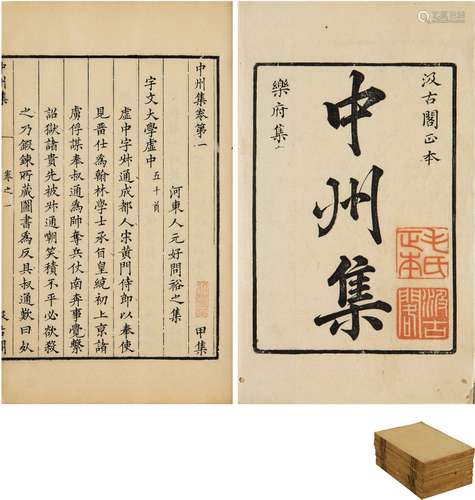 汲古閣正本
中州集
樂府集
毛氏正本
汲古閣
中州集卷第一
甲集
河東人元好問裕之集
宇文大學虛中 五十首
虛中字叔通成都人宋黃門侍郎以奉使
見畱仕爲翰林學士承旨皇統初上京諸
虜俘謀奉叔通爲帥奪兵仗南奔事覺繫
詔獄諸貴先被叔通嘲笑積不平必欲殺
之乃鍛鍊所藏圖書爲反具叔通歎曰
中州集
卷之一
汲古閣